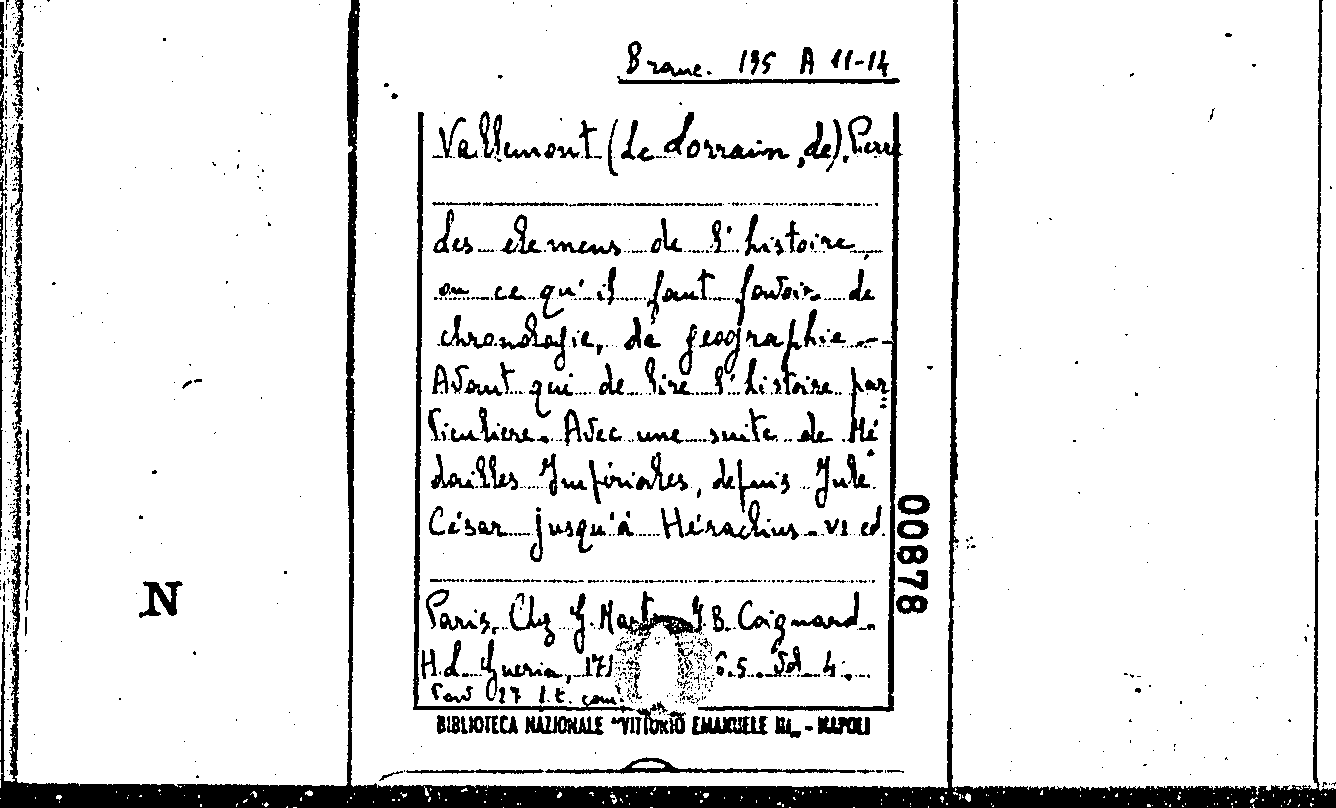 Branc. 195 A 11-14
Vallemont (Le Lorrain, de), Pierre
Les elemens de l'histoire,
ou ce qu'il faut savoir de
chronologie, de geographie --
Avant qui de lire l'histoire par
ticuliere. Avec une suite de Mé
dailles Impériales, depuis Jule
César jusqu'à Héraclius. VI ed.
Paris, Chez J. B. Coignard.
H. L. Guerin, 6.5. Vol 4.
Tav 27 l.t. con
BIBLIOTECA NAZIONALE "VITTORIO EMANUELE III„ - NAPOLI
00878
N